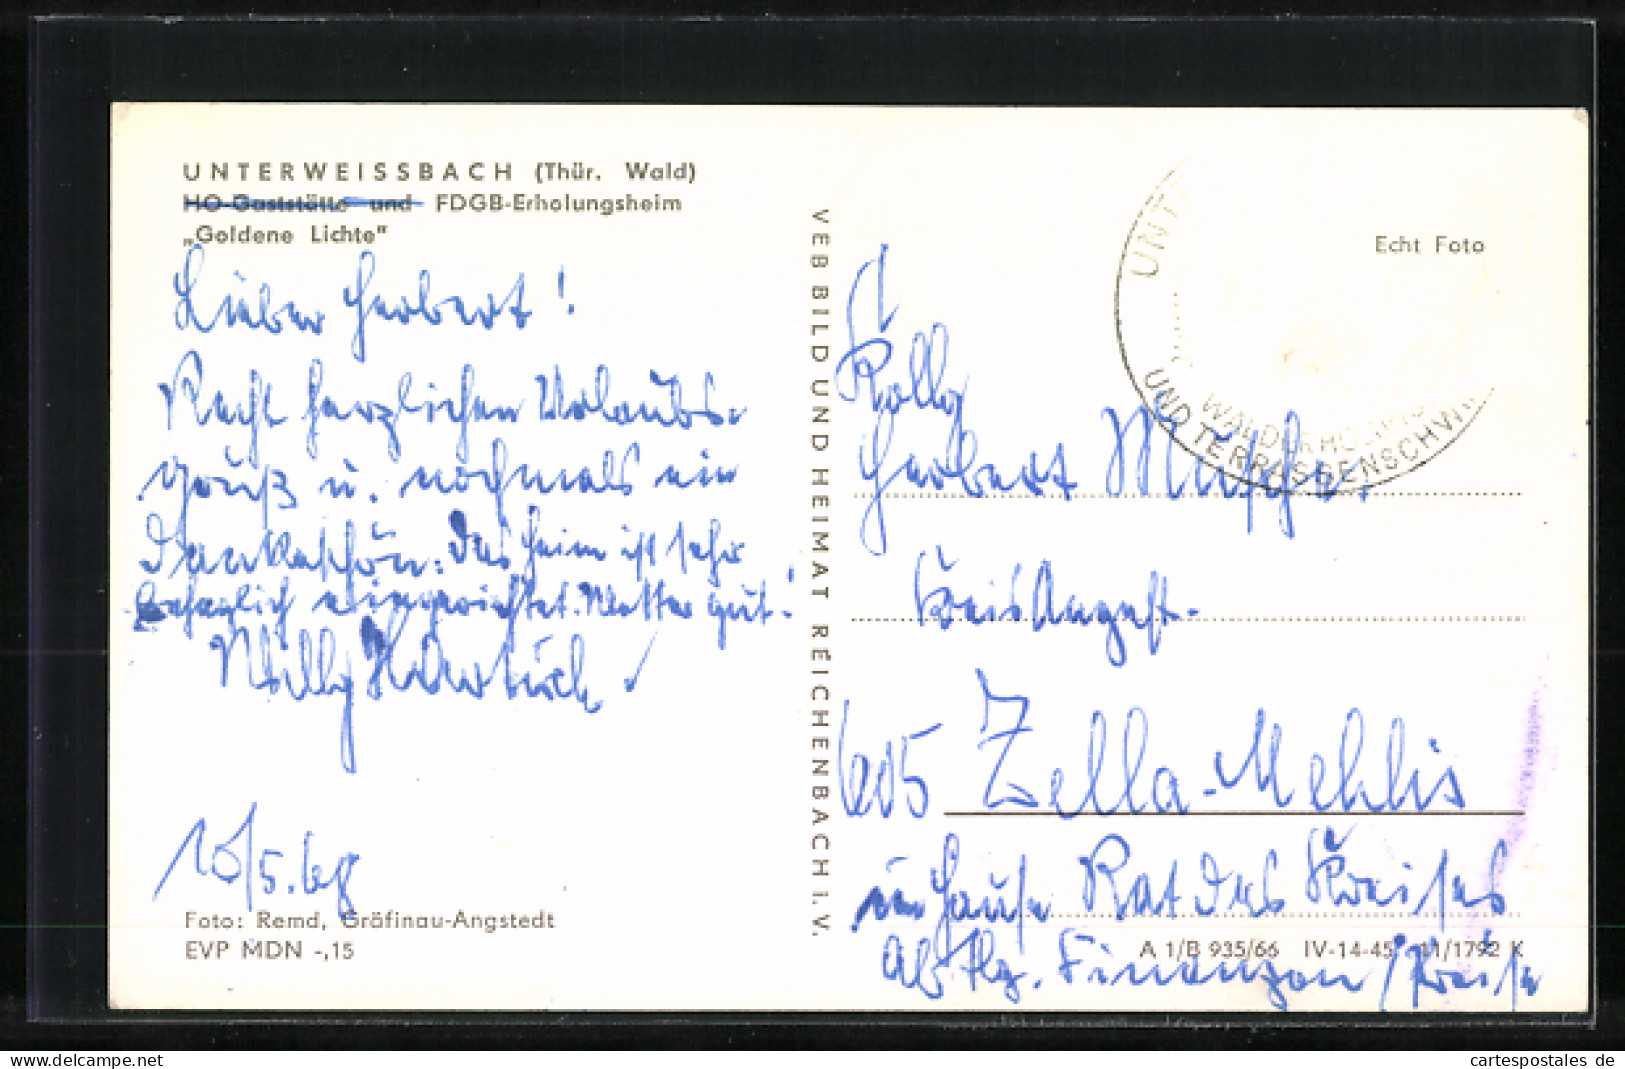 UNTERWEISSBACH (Thür. Wald)
HO-Gaststätte und FDGB-Erholungsheim
„Goldene Lichte"
Lieber Herbert!
Recht herzlichen Urlaubs-
gruß u. nochmals ein
Dankeschön. Das Heim ist sehr
behaglich eingerichtet. Wetter gut!
Willy
10/5.68
Foto: Remd, Gräfinau-Angstedt
EVP MDN -,15
VEB BILD UND HEIMAT REICHENBACH I. V.
Echt Foto
UNT
WALD
UND TERRASSENSCHW
Herbert
605 Zella-Mehlis
im Hause Rat des Kreises
Abtlg. Finanzen / Preise
A 1/B 935/66 IV-14-45 11/1792 K
www.delcampe.net
cartespostales de